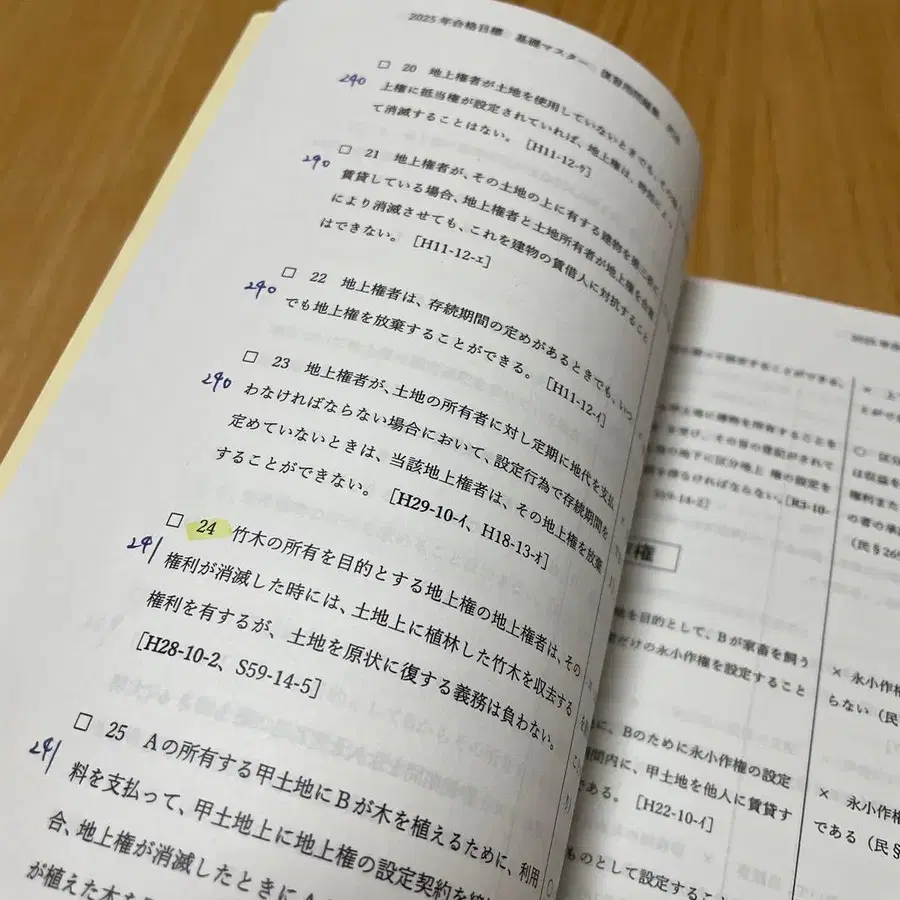 2025年合格目標 基礎マスター 復習用問題集
240
□ 20 地上権者が土地を使用していないときでも、その
上権に抵当権が設定されていれば、地上権は、時効によっ
て消滅することはない。 [H11-12-ｳ]
290
□ 21 地上権者が、その土地の上に有する建物を第三者に
賃貸している場合、地上権者と土地所有者が地上権を合意
により消滅させても、これを建物の賃借人に対抗すること
はできない。 [H11-12-ｴ]
240
□ 22 地上権者は、存続期間の定めがあるときでも、いつ
でも地上権を放棄することができる。 [H11-12-ｲ]
240
□ 23 地上権者が、土地の所有者に対し定期に地代を支払
わなければならない場合において、設定行為で存続期間を
定めていないときは、当該地上権者は、その地上権を放棄
することができない。 [H29-10-ｲ、H18-13-ｵ]
241
□ 24 竹木の所有を目的とする地上権の地上権者は、その
権利が消滅した時には、土地上に植林した竹木を収去する
権利を有するが、土地を原状に復する義務は負わない。
[H28-10-2、S59-14-5]
241
□ 25 Aの所有する甲土地にBが木を植えるために、利用
料を支払って、甲土地上に地上権の設定契約を
合、地上権が消滅したときに
が植えた木を
2025年合
することができる。
土地に建物を所有することを
その旨の登記がされて
の地下に区分地上権の設定を
を得なければならない。[R3-10-
S59-14-2]
権
地を目的として、Bが家畜を飼う
だけの永小作権を設定すること
に、Bのために永小作権の設定
期間内に、甲土地を他人に賃貸す
である。 [H22-10-ｲ]
ものとして設定すること
× 上
とがで
○ 区分
は収益を
権利また
の者の承
(民§26
× 永小作権
らない(民
× 永小作権
である(民§